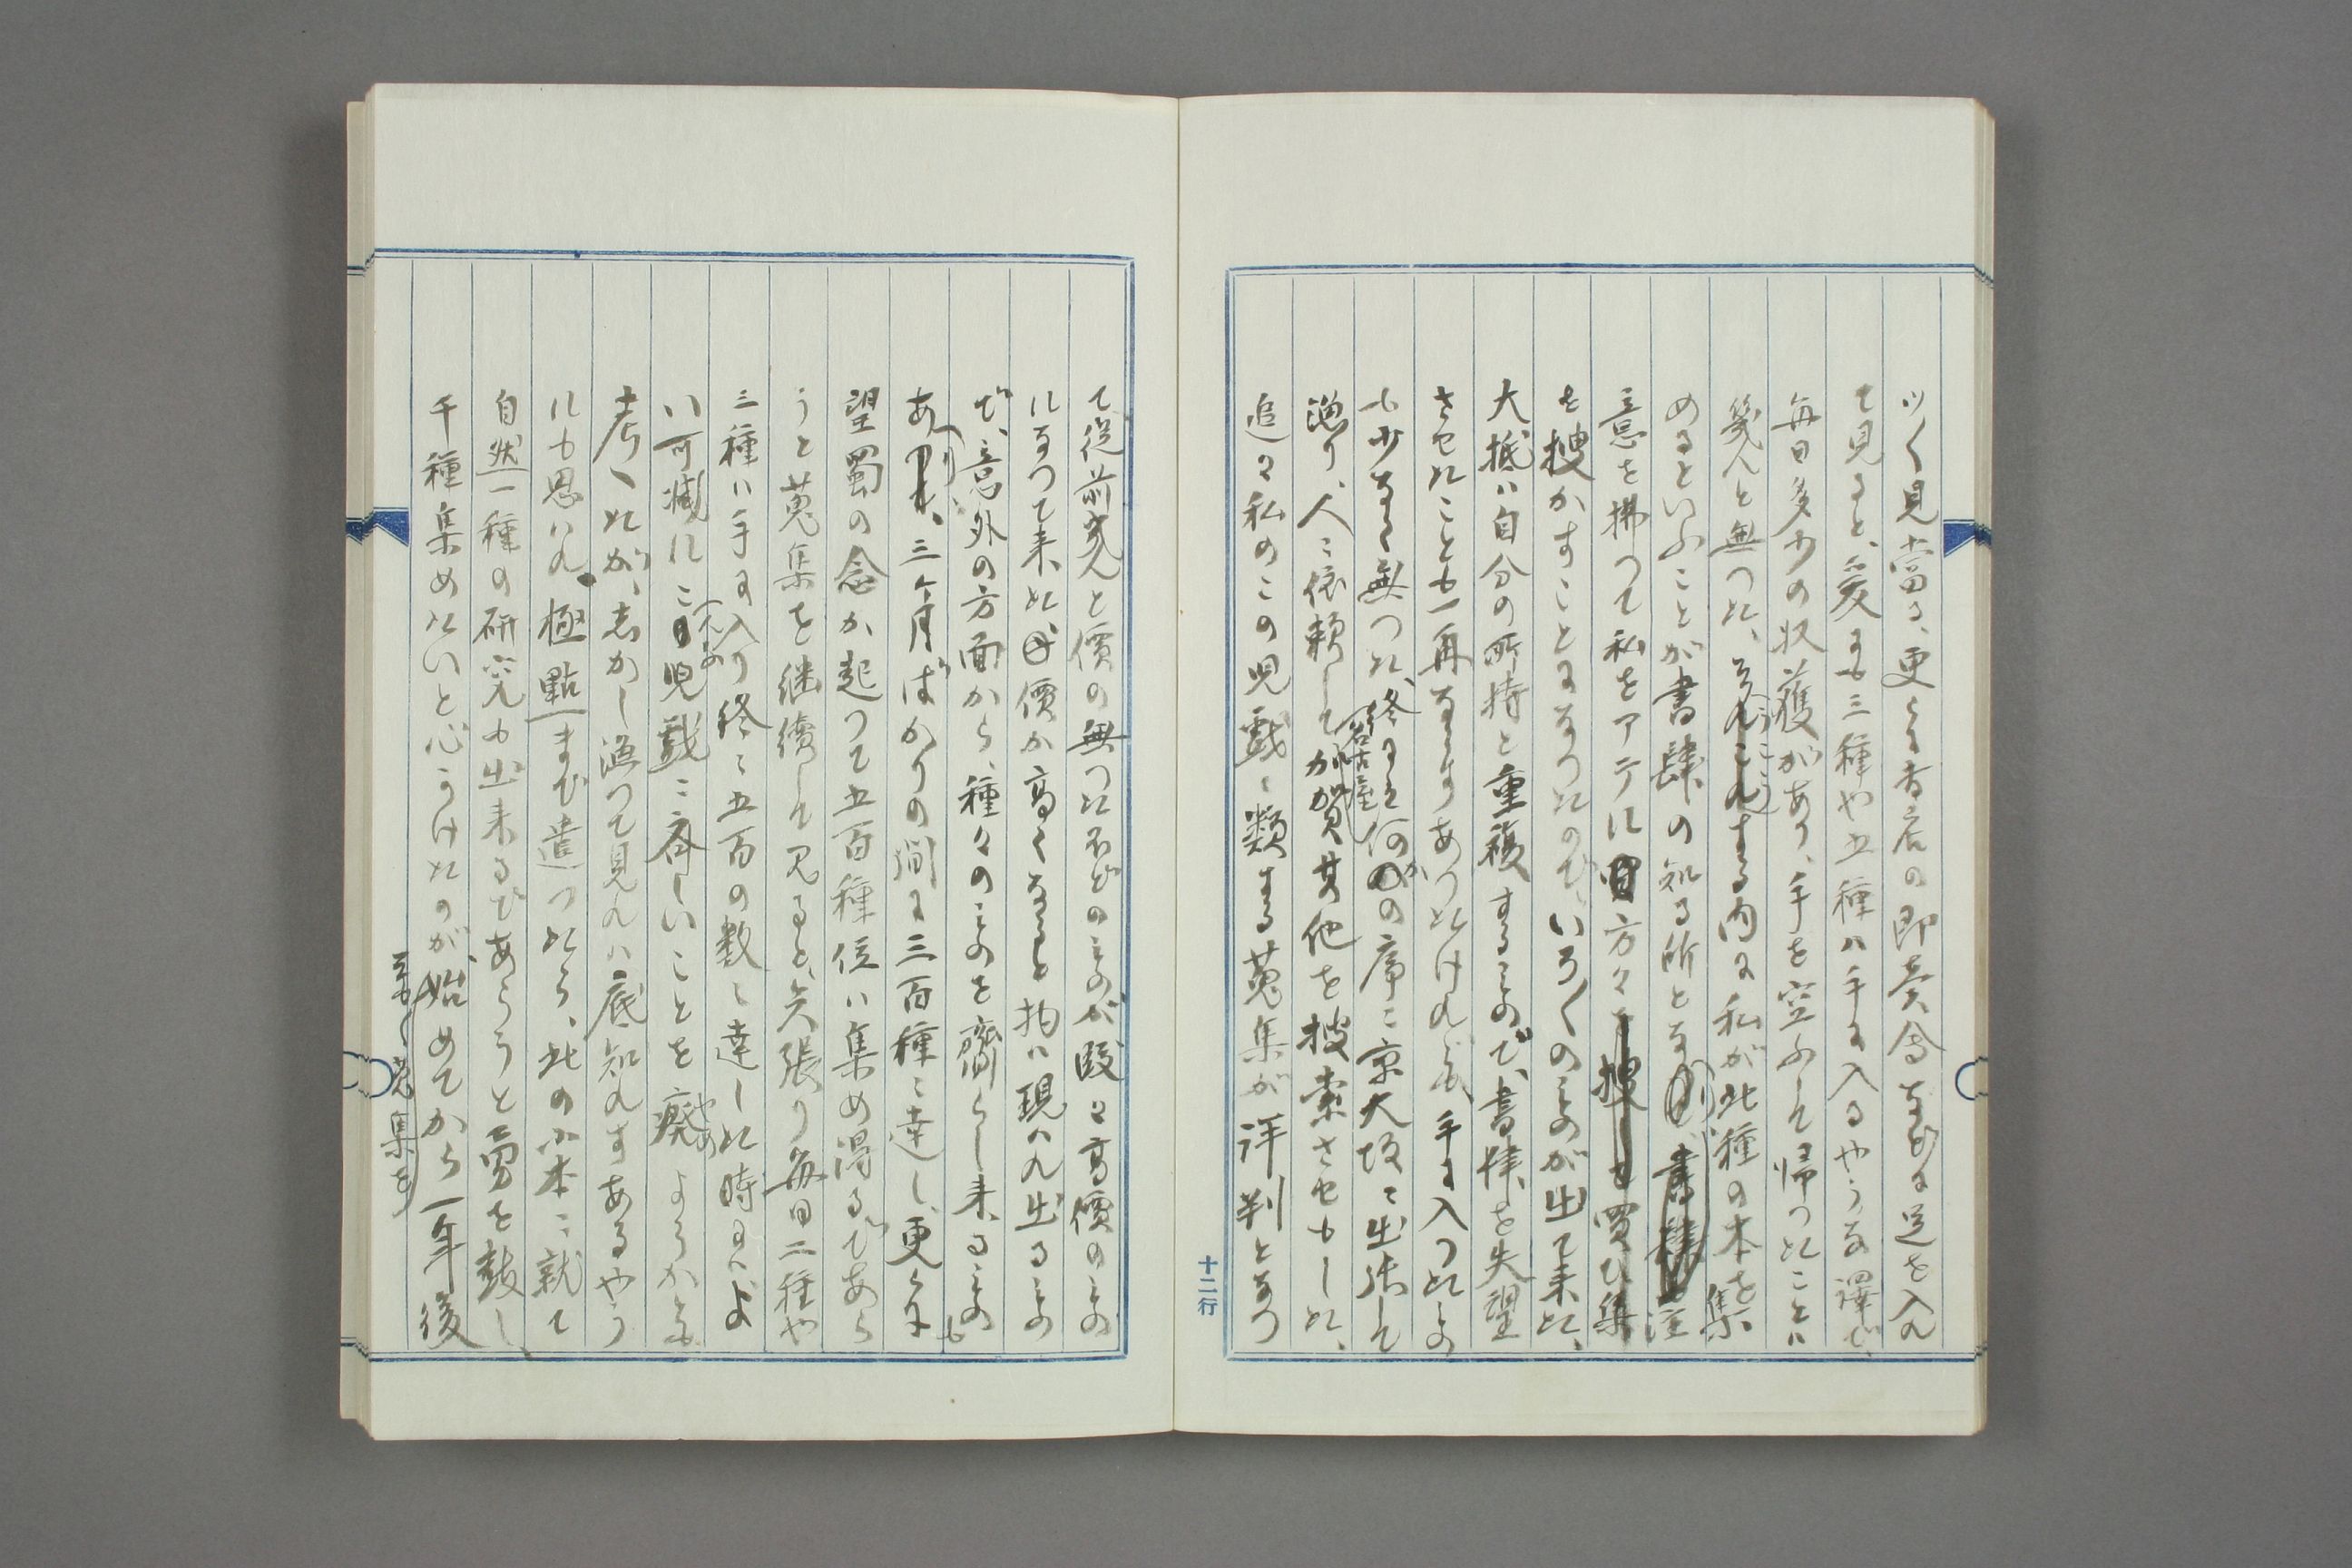 ツく見當る、更らに書店の即賣會などに送を入れ
て見ると、爰にも三種や五種ハ手に入るやうな譯で、
毎日多少の収獲があり、手を空ふして帰つたことハ
幾んと無つた、そうこうする内に私が此種の本を集
めるといふことが書肆の知る所となり、注
意を拂つて私をアテに方々を買ひ集
を捜かすことになつたので、いろ／＼のものが出て来た、
大抵ハ自分の所持と重複するもので、書肆を失望
させたことも一再ならずあつたけれども、手に入つたもの
も少なく無つた、終には何かの序に京大坂に出張して
漁り、人に依頼して名古屋加賀其他を捜索させもした、
追々私のこの児戯に類する蒐集が評判となつ
十二行
て従前幾んと價の無つたほどのものが段々高價のもの
になつて来た、價が高くなると物ハ現ハれ出るもの
で、意外の方面から、種々のものを齎らし来るものも
あり、三ヶ月ばかりの間に三百種に達し、更らに
望蜀の念が起つて五百種位ハ集め得るであら
うと蒐集を継續して見ると、矢張り毎日二種や
三種ハ手に入り終に五百の数に達した時にハよ
い可減にこんな児戯に斉しいことを癈(やめ)ようかとも
考へたが、しかし漁つて見れハ底知れずあるやう
にも思ハれ極點まで遣つたら、此の小本に就て
自然一種の研究も出来るであらうと勇を鼓し
千種集めたいと心うけたのが、始めてから一年後
蒐集を